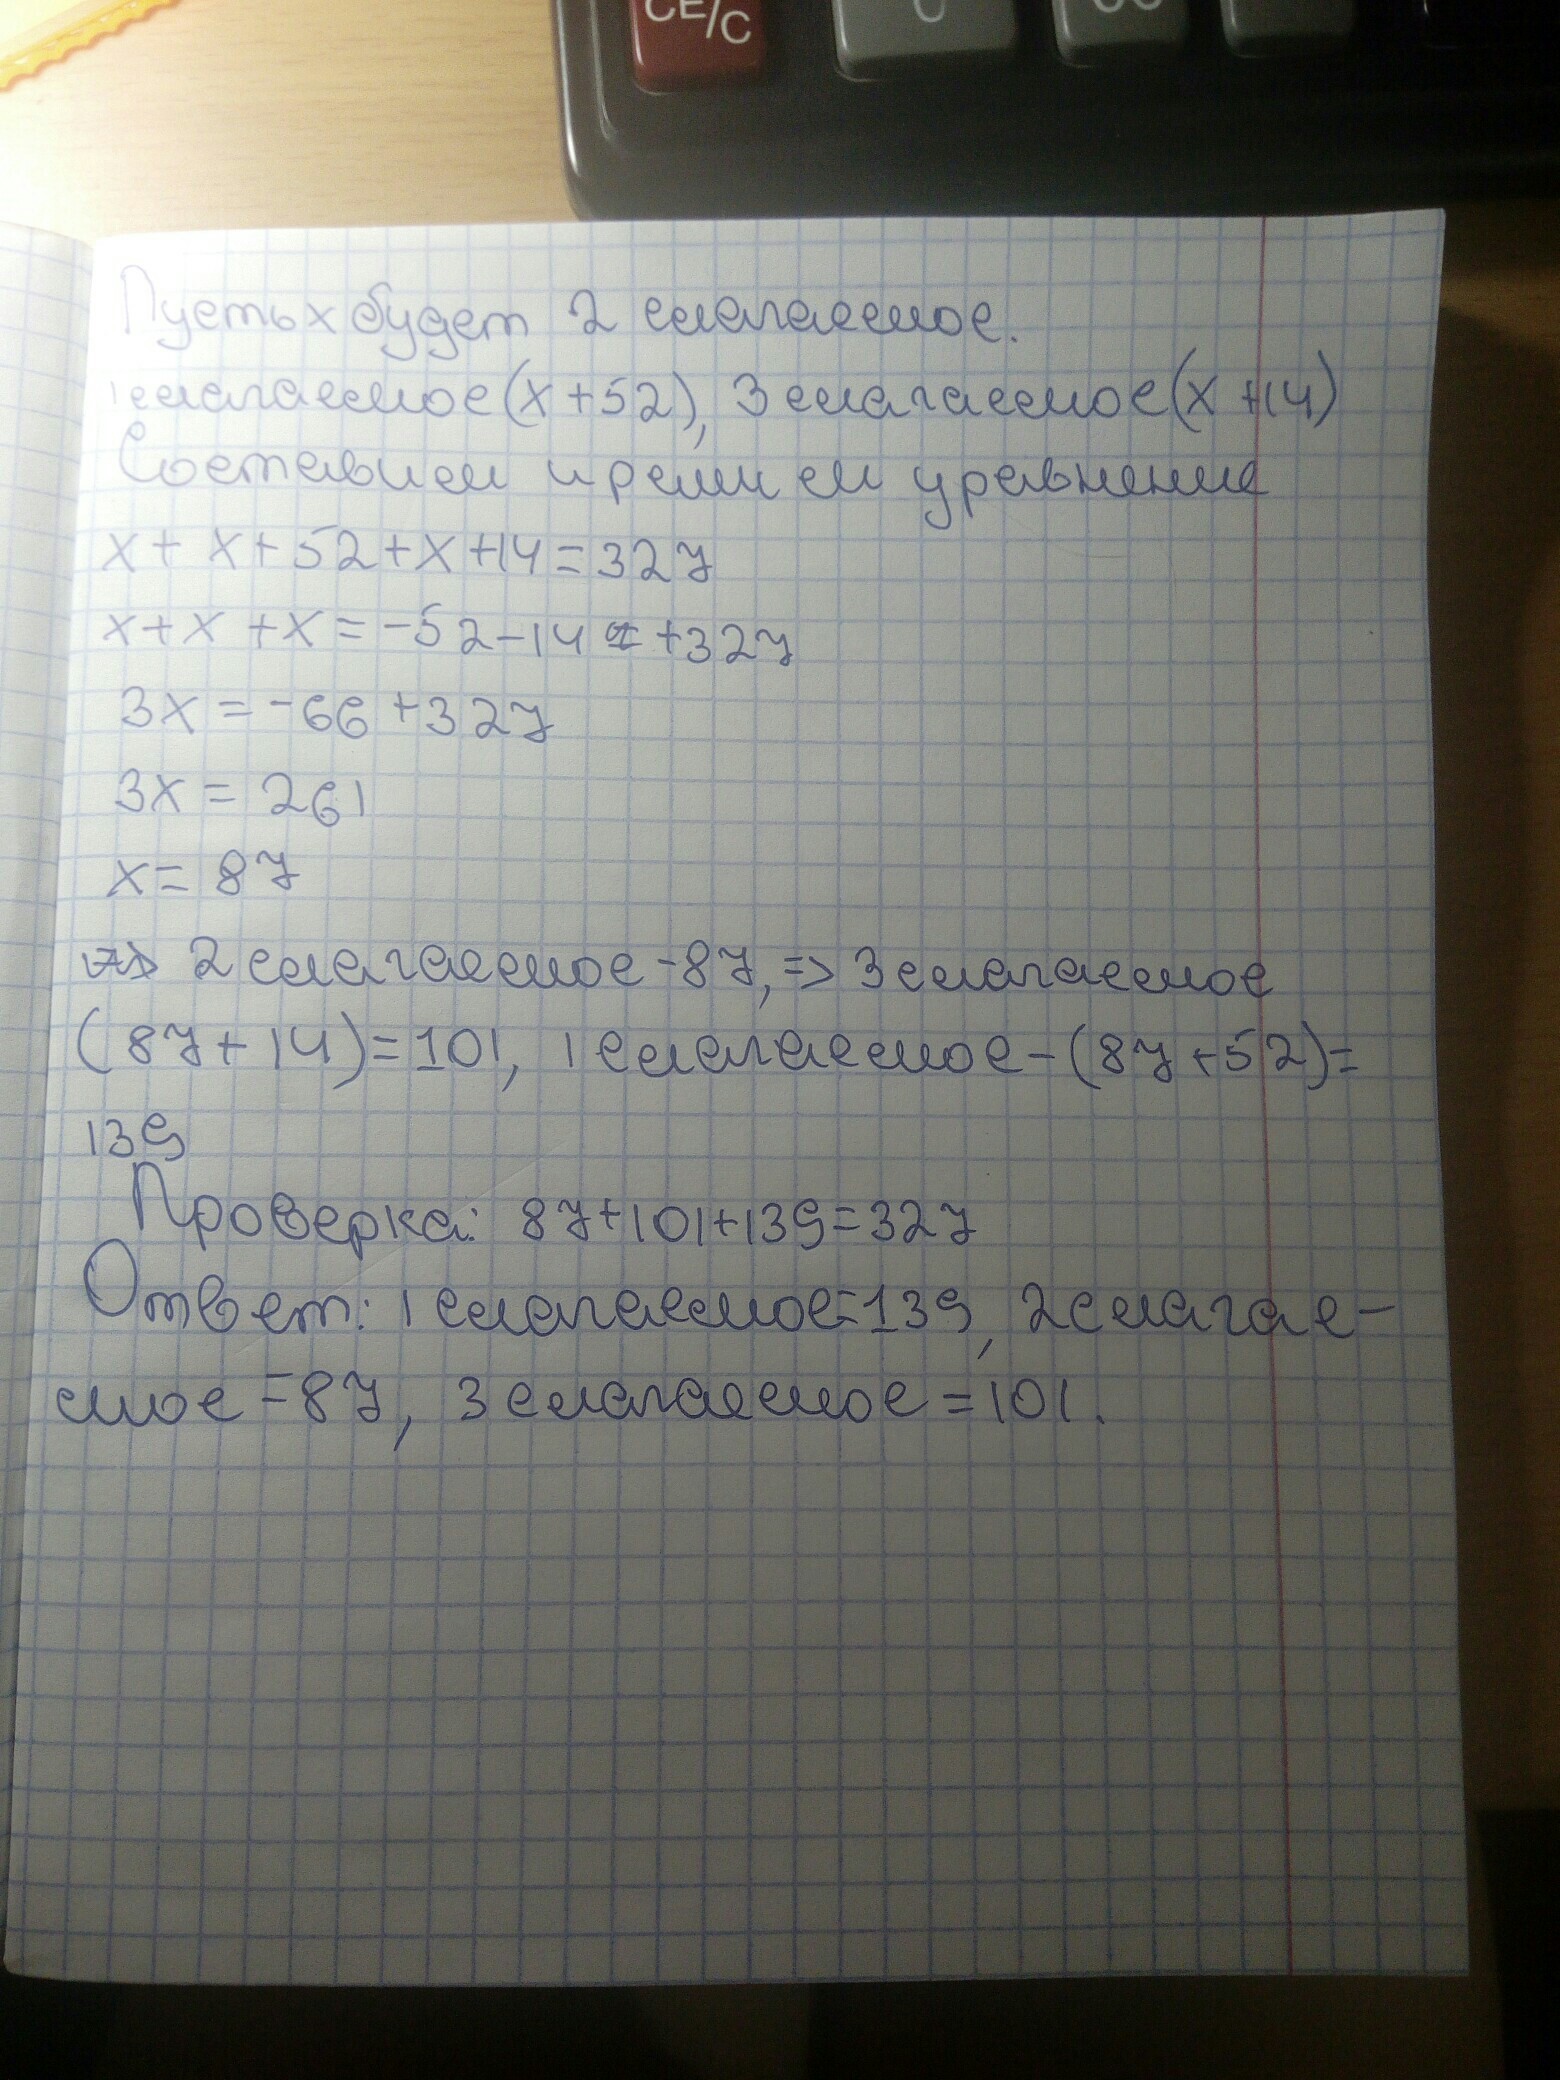 CE/C
Пусть x будет 2 слагаемое.
1 слагаемое (x+52), 3 слагаемое (x+14)
Составим и решим уравнение
x+x+52+x+14=327
x+x+x=-52-14+327
3x=-66+327
3x=261
x=87
2 слагаемое-87,=> 3 слагаемое
(87+14)=101, 1 слагаемое-(87+52)=
139
Проверка: 87+101+139=327
Ответ: 1 слагаемое=139, 2 слагае-
мое=87, 3 слагаемое=101.